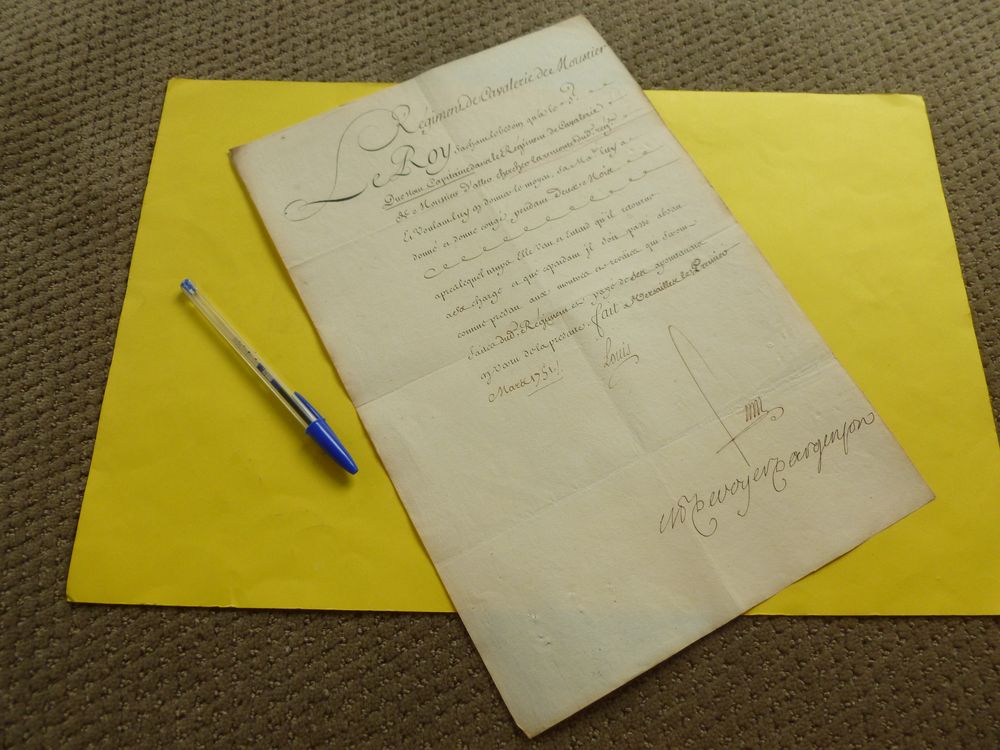 Régiment de Cavalerie de Moustier
Le Roy, sachant le besoin qu'a le S.
Capitaine dans le Régiment de Cavalerie
de Moustier d'aller chercher la remonte dud. regt.
Et Voulant luy donner le moyen, Sa Maté. luy a
donné et donne congé pendant Deux Mois
apres lequel temps Elle Veut et Entend qu'il retourne
a sa charge et que cependant il soit passé absent
comme present aux montres et reveües qui seront
faites dud. Régiment et payé de ses apointemens
en Vertu de la presente. fait a Versailles le Premier
Mars 1751.
Louis
M. P. de voyer d'argenson